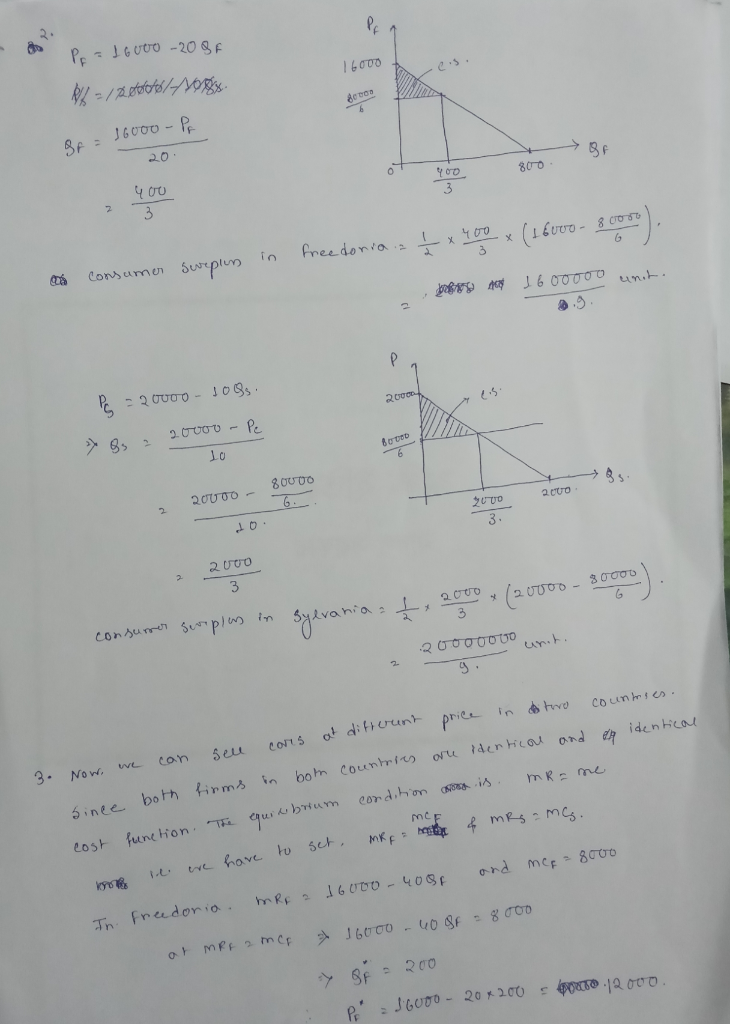 2.
P_F = 16000 - 20 Q_F
Q_F = (16000 - P_F) / 20.
= 400/3
P_F
16000
80000/6
c.s.
0
400/3
800.
Q_F
consumer surplus in freedonia = 1/2 × 400/3 × (16000 - 80000/6).
= 1600000/9. unit.
P_S = 20000 - 10Q_S.
⇒ Q_S = (20000 - P_c) / 10
= (20000 - 80000/6.) / 10.
= 2000/3
P
20000
80000/6
c.s.
2000/3.
2000.
Q_S.
consumer surplus in Sylvania = 1/2 × 2000/3 × (20000 - 80000/6).
= 20000000/9. unit.
3. Now, we can sell cars at different price in two countries.
Since both firms in both countries are identical and identical
cost function. The equilibrium condition is. MR = MC
i.e. we have to set, MR_F = MC_F & MR_S = MC_S.
In Freedonia. MR_F = 16000 - 40Q_F and MC_F = 8000
at MR_F = MC_F ⇒ 16000 - 40 Q_F = 8000
⇒ Q_F* = 200
∴ P_F* = 16000 - 20 × 200 = 12000.